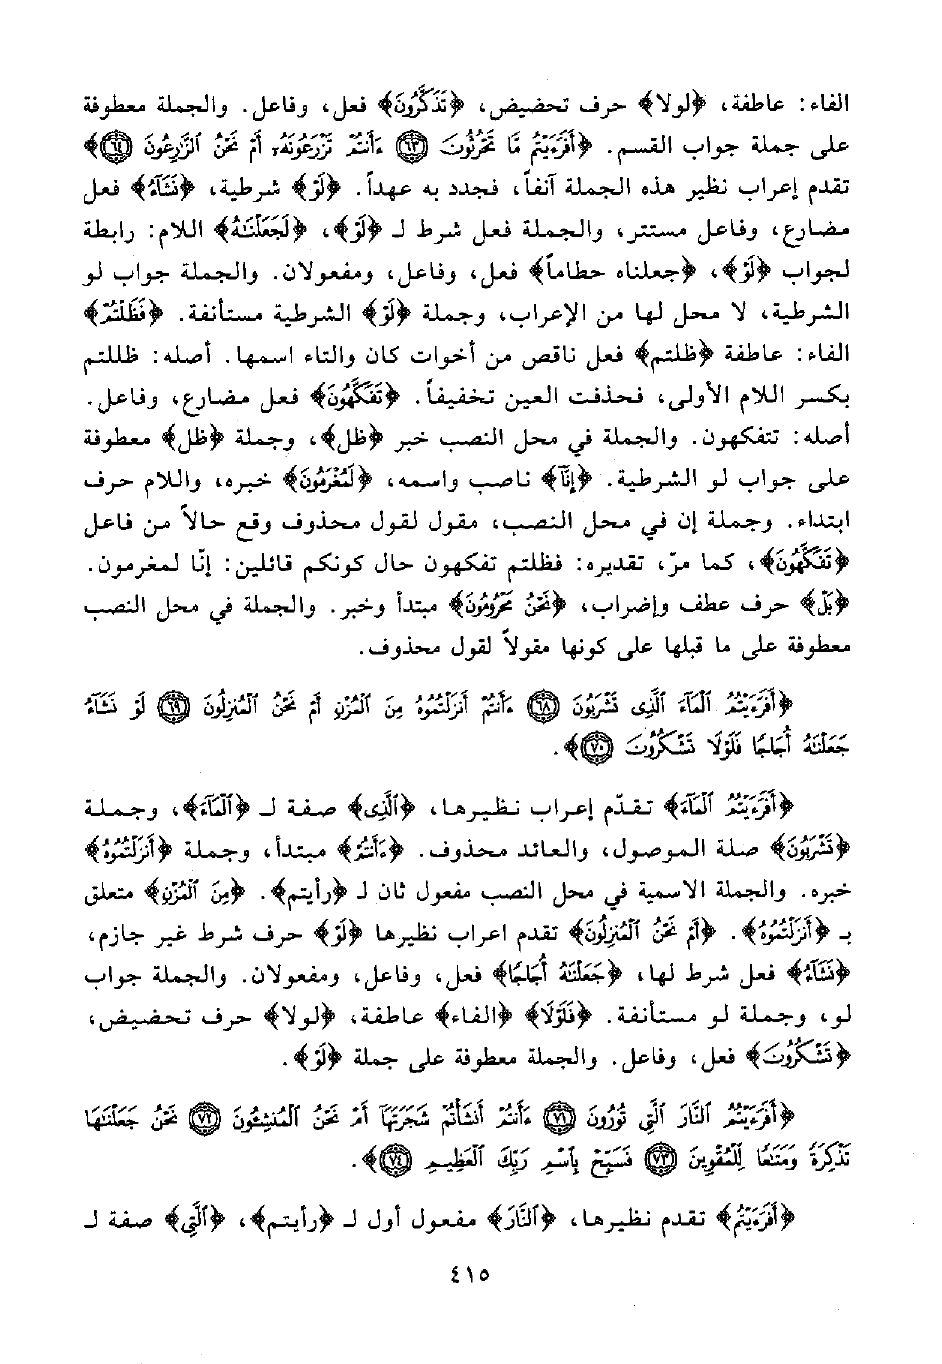 الفاء: عاطفة، ﴿لولا﴾ حرف تحضيض، ﴿تَذَكَّرُونَ﴾ فعل، وفاعل. والجملة معطوفة
على جملة جواب القسم. ﴿أَفَرَءَيْتُم مَّا تَحْرُثُونَ ﴿٦٣﴾ ءَأَنتُمْ تَزْرَعُونَهُۥٓ أَمْ نَحْنُ ٱلزَّٰرِعُونَ ﴿٦٤﴾﴾
تقدم إعراب نظير هذه الجملة آنفاً، فجدد به عهداً. ﴿لَوْ﴾ شرطية، ﴿نَشَآءُ﴾ فعل
مضارع، وفاعل مستتر، والجملة فعل شرط لـ ﴿لَوْ﴾، ﴿لَجَعَلْنَٰهُ﴾ اللام: رابطة
لجواب ﴿لَوْ﴾، ﴿جعلناه حطاماً﴾ فعل، وفاعل، ومفعولان. والجملة جواب لو
الشرطية، لا محل لها من الإعراب، وجملة ﴿لَوْ﴾ الشرطية مستأنفة. ﴿فَظَلْتُمْ﴾
الفاء: عاطفة ﴿ظلتم﴾ فعل ناقص من أخوات كان والتاء اسمها. أصله: ظللتم
بكسر اللام الأولى، فحذفت العين تخفيفاً. ﴿تَفَكَّهُونَ﴾ فعل مضارع، وفاعل.
أصله: تتفكهون. والجملة في محل النصب خبر ﴿ظل﴾، وجملة ﴿ظل﴾ معطوفة
على جواب لو الشرطية. ﴿إِنَّا﴾ ناصب واسمه، ﴿لَمُغْرَمُونَ﴾ خبره، واللام حرف
ابتداء. وجملة إن في محل النصب، مقول لقول محذوف وقع حالاً من فاعل
﴿تَفَكَّهُونَ﴾، كما مرّ، تقديره: فظلتم تفكهون حال كونكم قائلين: إنّا لمغرمون.
﴿بَلْ﴾ حرف عطف وإضراب، ﴿نَحْنُ مَحْرُومُونَ﴾ مبتدأ وخبر. والجملة في محل النصب
معطوفة على ما قبلها على كونها مقولاً لقول محذوف.
﴿أَفَرَءَيْتُمُ ٱلْمَآءَ ٱلَّذِى تَشْرَبُونَ ﴿٦٨﴾ ءَأَنتُمْ أَنزَلْتُمُوهُ مِنَ ٱلْمُزْنِ أَمْ نَحْنُ ٱلْمُنزِلُونَ ﴿٦٩﴾ لَوْ نَشَآءُ
جَعَلْنَٰهُ أُجَاجًا فَلَوْلَا تَشْكُرُونَ ﴿٧٠﴾﴾.
﴿أَفَرَءَيْتُمُ ٱلْمَآءَ﴾ تقدّم إعراب نظيرها، ﴿ٱلَّذِى﴾ صفة لـ ﴿ٱلْمَآءَ﴾، وجملة
﴿تَشْرَبُونَ﴾ صلة الموصول، والعائد محذوف. ﴿ءَأَنتُمْ﴾ مبتدأ، وجملة ﴿أَنزَلْتُمُوهُ﴾
خبره. والجملة الاسمية في محل النصب مفعول ثان لـ ﴿رأيتم﴾. ﴿مِنَ ٱلْمُزْنِ﴾ متعلق
بـ ﴿أَنزَلْتُمُوهُ﴾. ﴿أَمْ نَحْنُ ٱلْمُنزِلُونَ﴾ تقدم اعراب نظيرها ﴿لَوْ﴾ حرف شرط غير جازم،
﴿نَشَآءُ﴾ فعل شرط لها، ﴿جَعَلْنَٰهُ أُجَاجًا﴾ فعل، وفاعل، ومفعولان. والجملة جواب
لو، وجملة لو مستأنفة. ﴿فَلَوْلَا﴾ ﴿الفاء﴾ عاطفة، ﴿لولا﴾ حرف تحضيض،
﴿تَشْكُرُونَ﴾ فعل، وفاعل. والجملة معطوفة على جملة ﴿لَوْ﴾.
﴿أَفَرَءَيْتُمُ ٱلنَّارَ ٱلَّتِى تُورُونَ ﴿٧١﴾ ءَأَنتُمْ أَنشَأْتُمْ شَجَرَتَهَآ أَمْ نَحْنُ ٱلْمُنشِـُٔونَ ﴿٧٢﴾ نَحْنُ جَعَلْنَٰهَا
تَذْكِرَةً وَمَتَٰعًا لِّلْمُقْوِينَ ﴿٧٣﴾ فَسَبِّحْ بِٱسْمِ رَبِّكَ ٱلْعَظِيمِ ﴿٧٤﴾﴾.
﴿أَفَرَءَيْتُمُ﴾ تقدم نظيرها، ﴿ٱلنَّارَ﴾ مفعول أول لـ ﴿رأيتم﴾، ﴿ٱلَّتِى﴾ صفة لـ
٤١٥